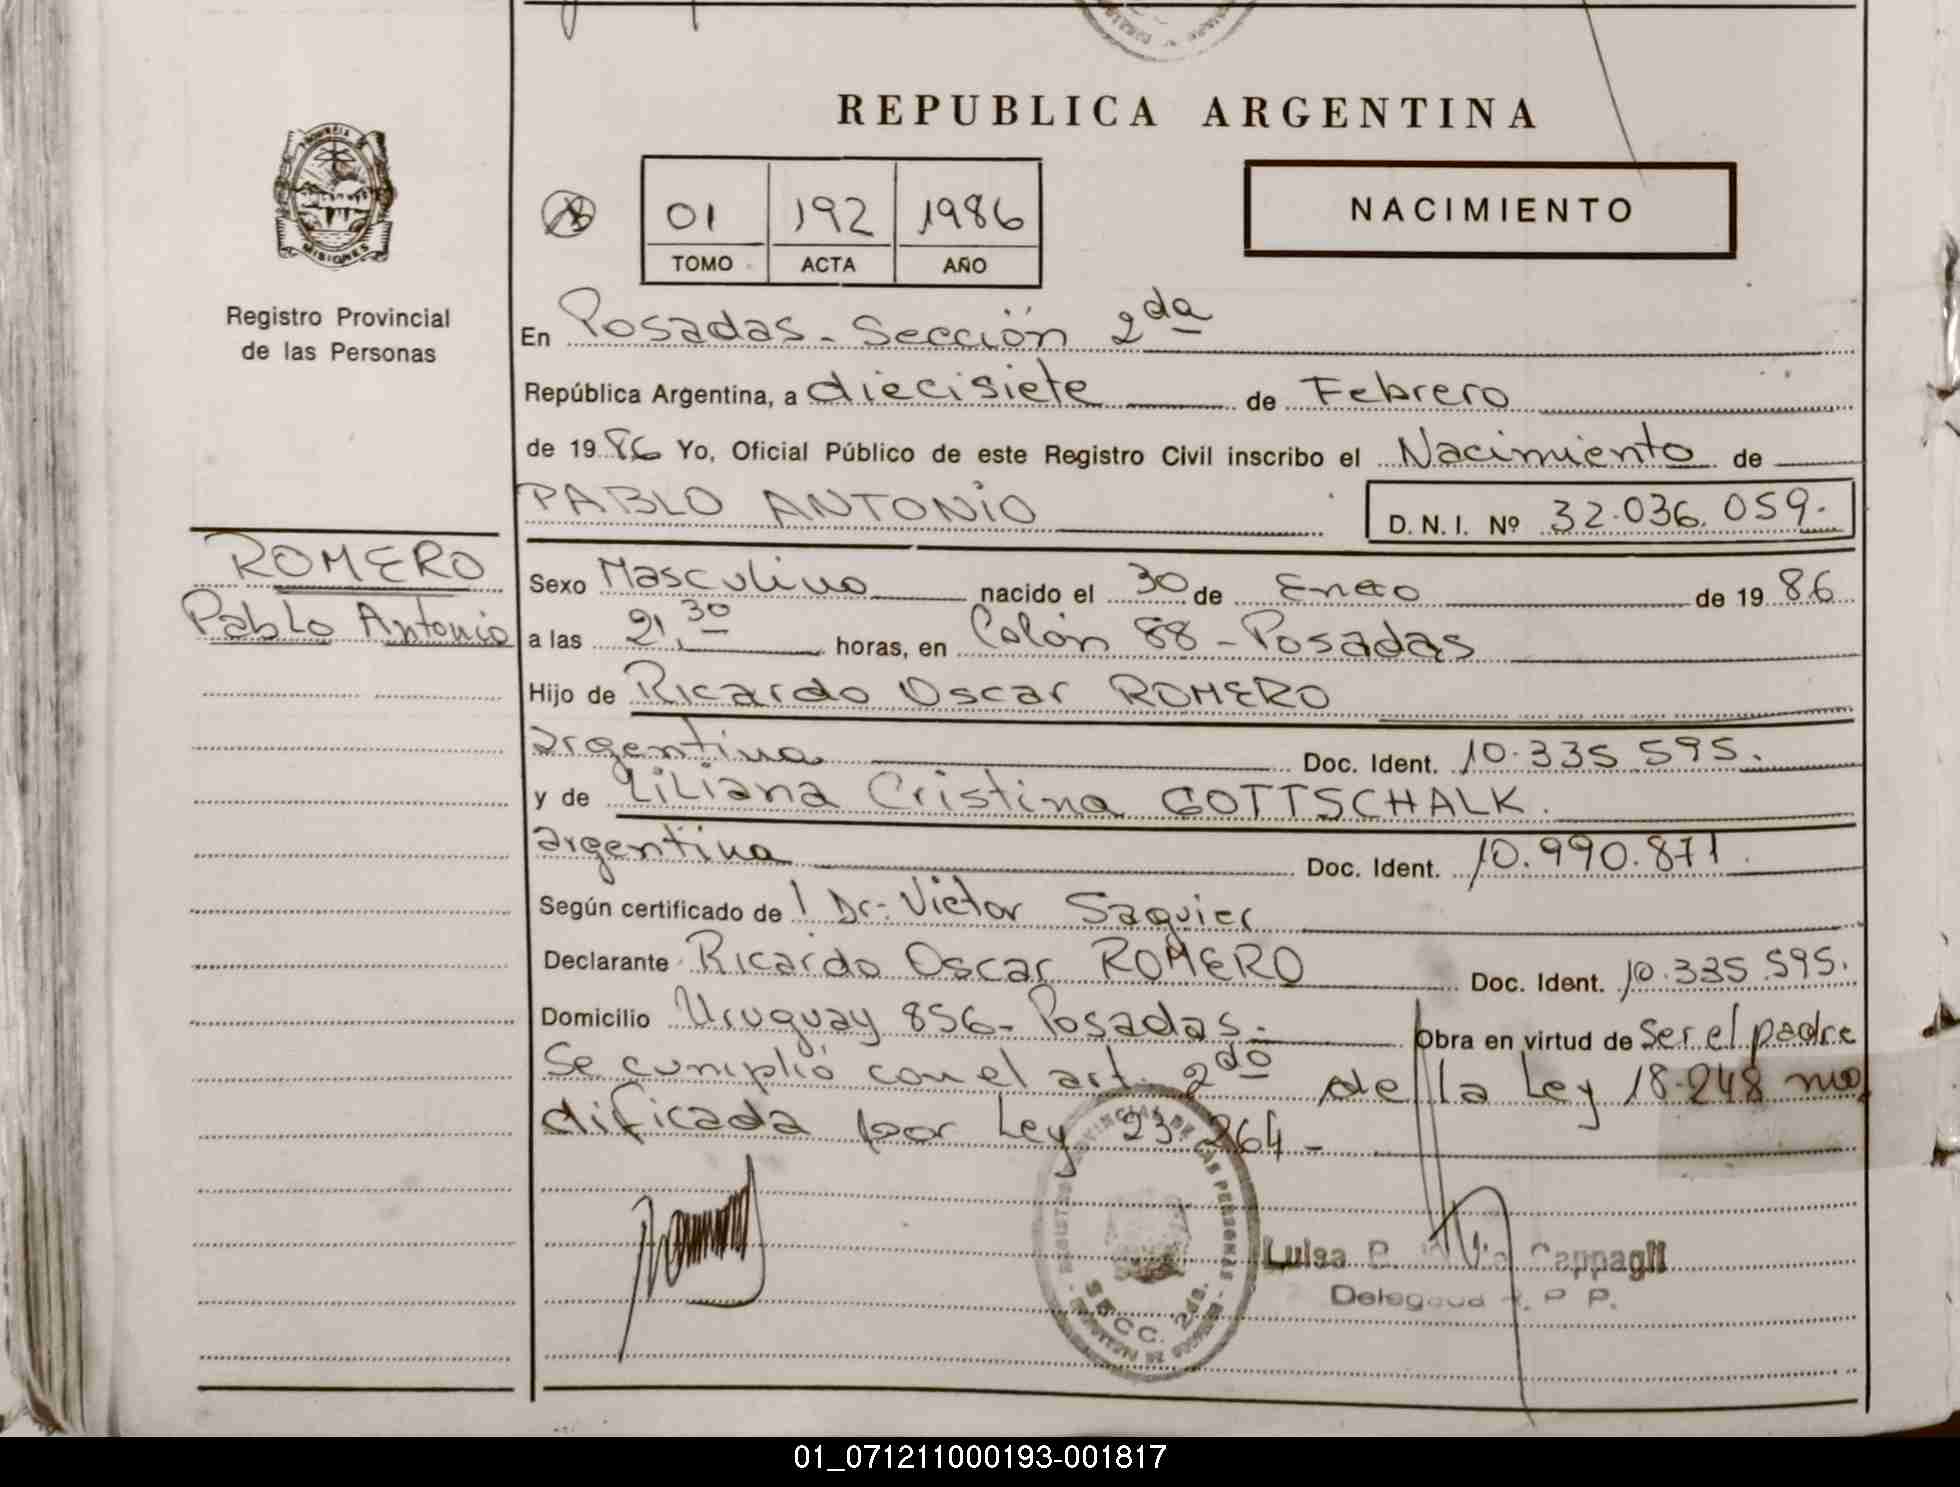 REPUBLICA ARGENTINA
PROVINCIA DE
MISIONES
Registro Provincial
de las Personas
01 192 1986
TOMO ACTA AÑO
NACIMIENTO
En Posadas - Sección 2da
República Argentina, a diecisiete de Febrero
de 1986 Yo, Oficial Público de este Registro Civil inscribo el Nacimiento de
PABLO ANTONIO D. N. I. Nº 32.036.059.
ROMERO
Pablo Antonio
Sexo Masculino nacido el 30 de Enero de 1986
a las 21,30 horas, en Colón 88 - Posadas
Hijo de Ricardo Oscar ROMERO
argentina Doc. Ident. 10.335.595.
y de Liliana Cristina GOTTSCHALK.
argentina Doc. Ident. 10.990.871.
Según certificado de l Dr. Victor Saquier
Declarante Ricardo Oscar ROMERO Doc. Ident. 10.335.595.
Domicilio Uruguay 856 - Posadas.- Obra en virtud de Ser el padre
Se cumplió con el art. 2do de la Ley 18.248 mo
dificada por Ley 23.264 -
PROVINCIAL DE LAS PERSONAS
SECC. 2da.
Luisa Cappagli
Delegada R. P. P.
01_071211000193-001817